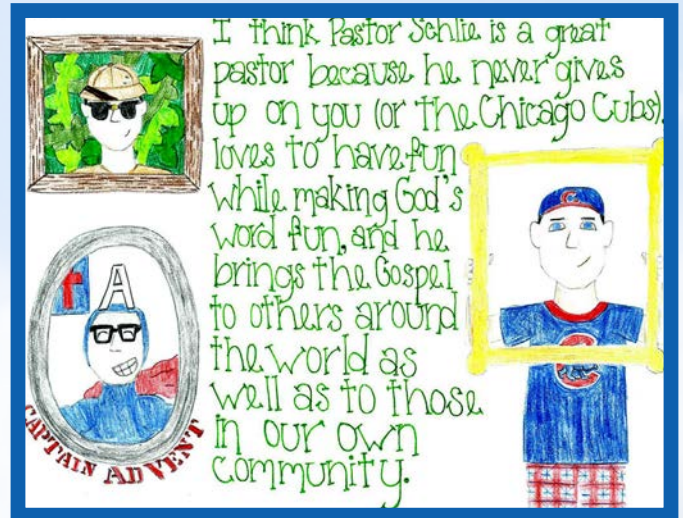 I think Pastor Schlie is a great
pastor because he never gives
up on you (or the Chicago Cubs),
loves to have fun
while making God's
word fun, and he
brings the Gospel
to others around
the world as
well as to those
in our own
community.
A
CAPTAIN ADVENT
C
C